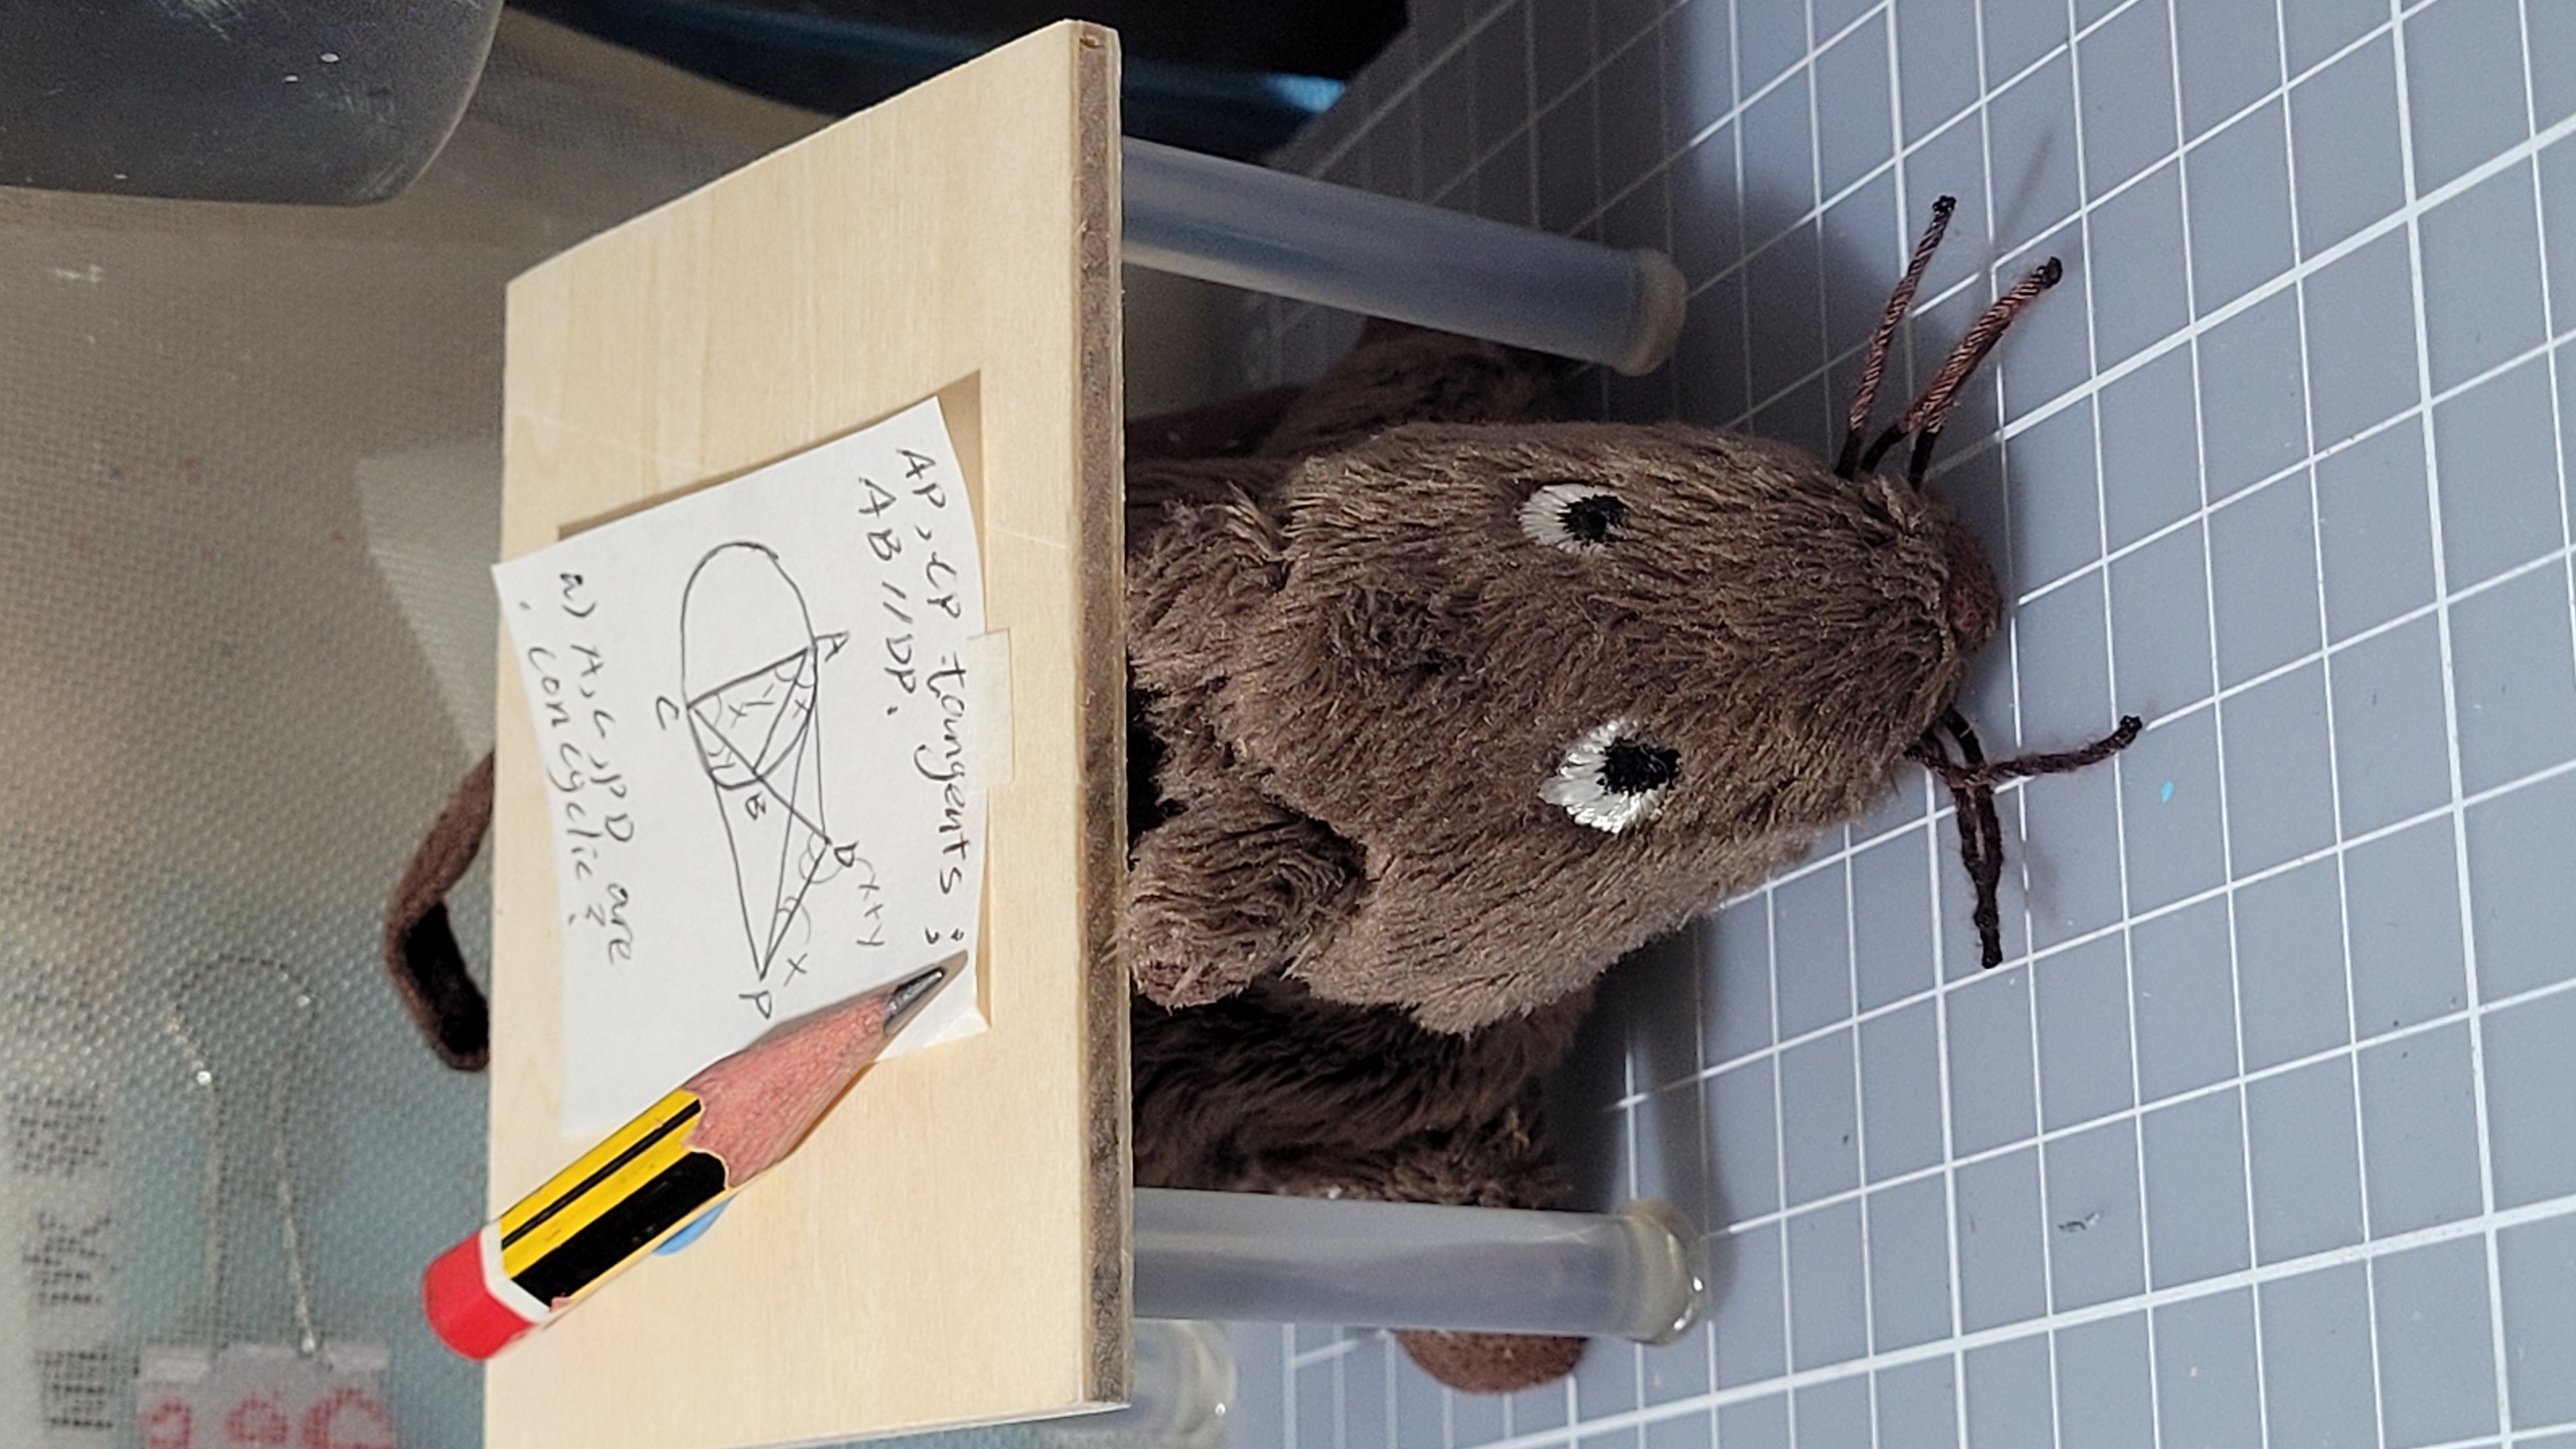 AP, CP tangents ;
AB // DP.
x+y
A
D
x
x
y
B
P
x
y
C
a) A, C, P D are
concyclic ?